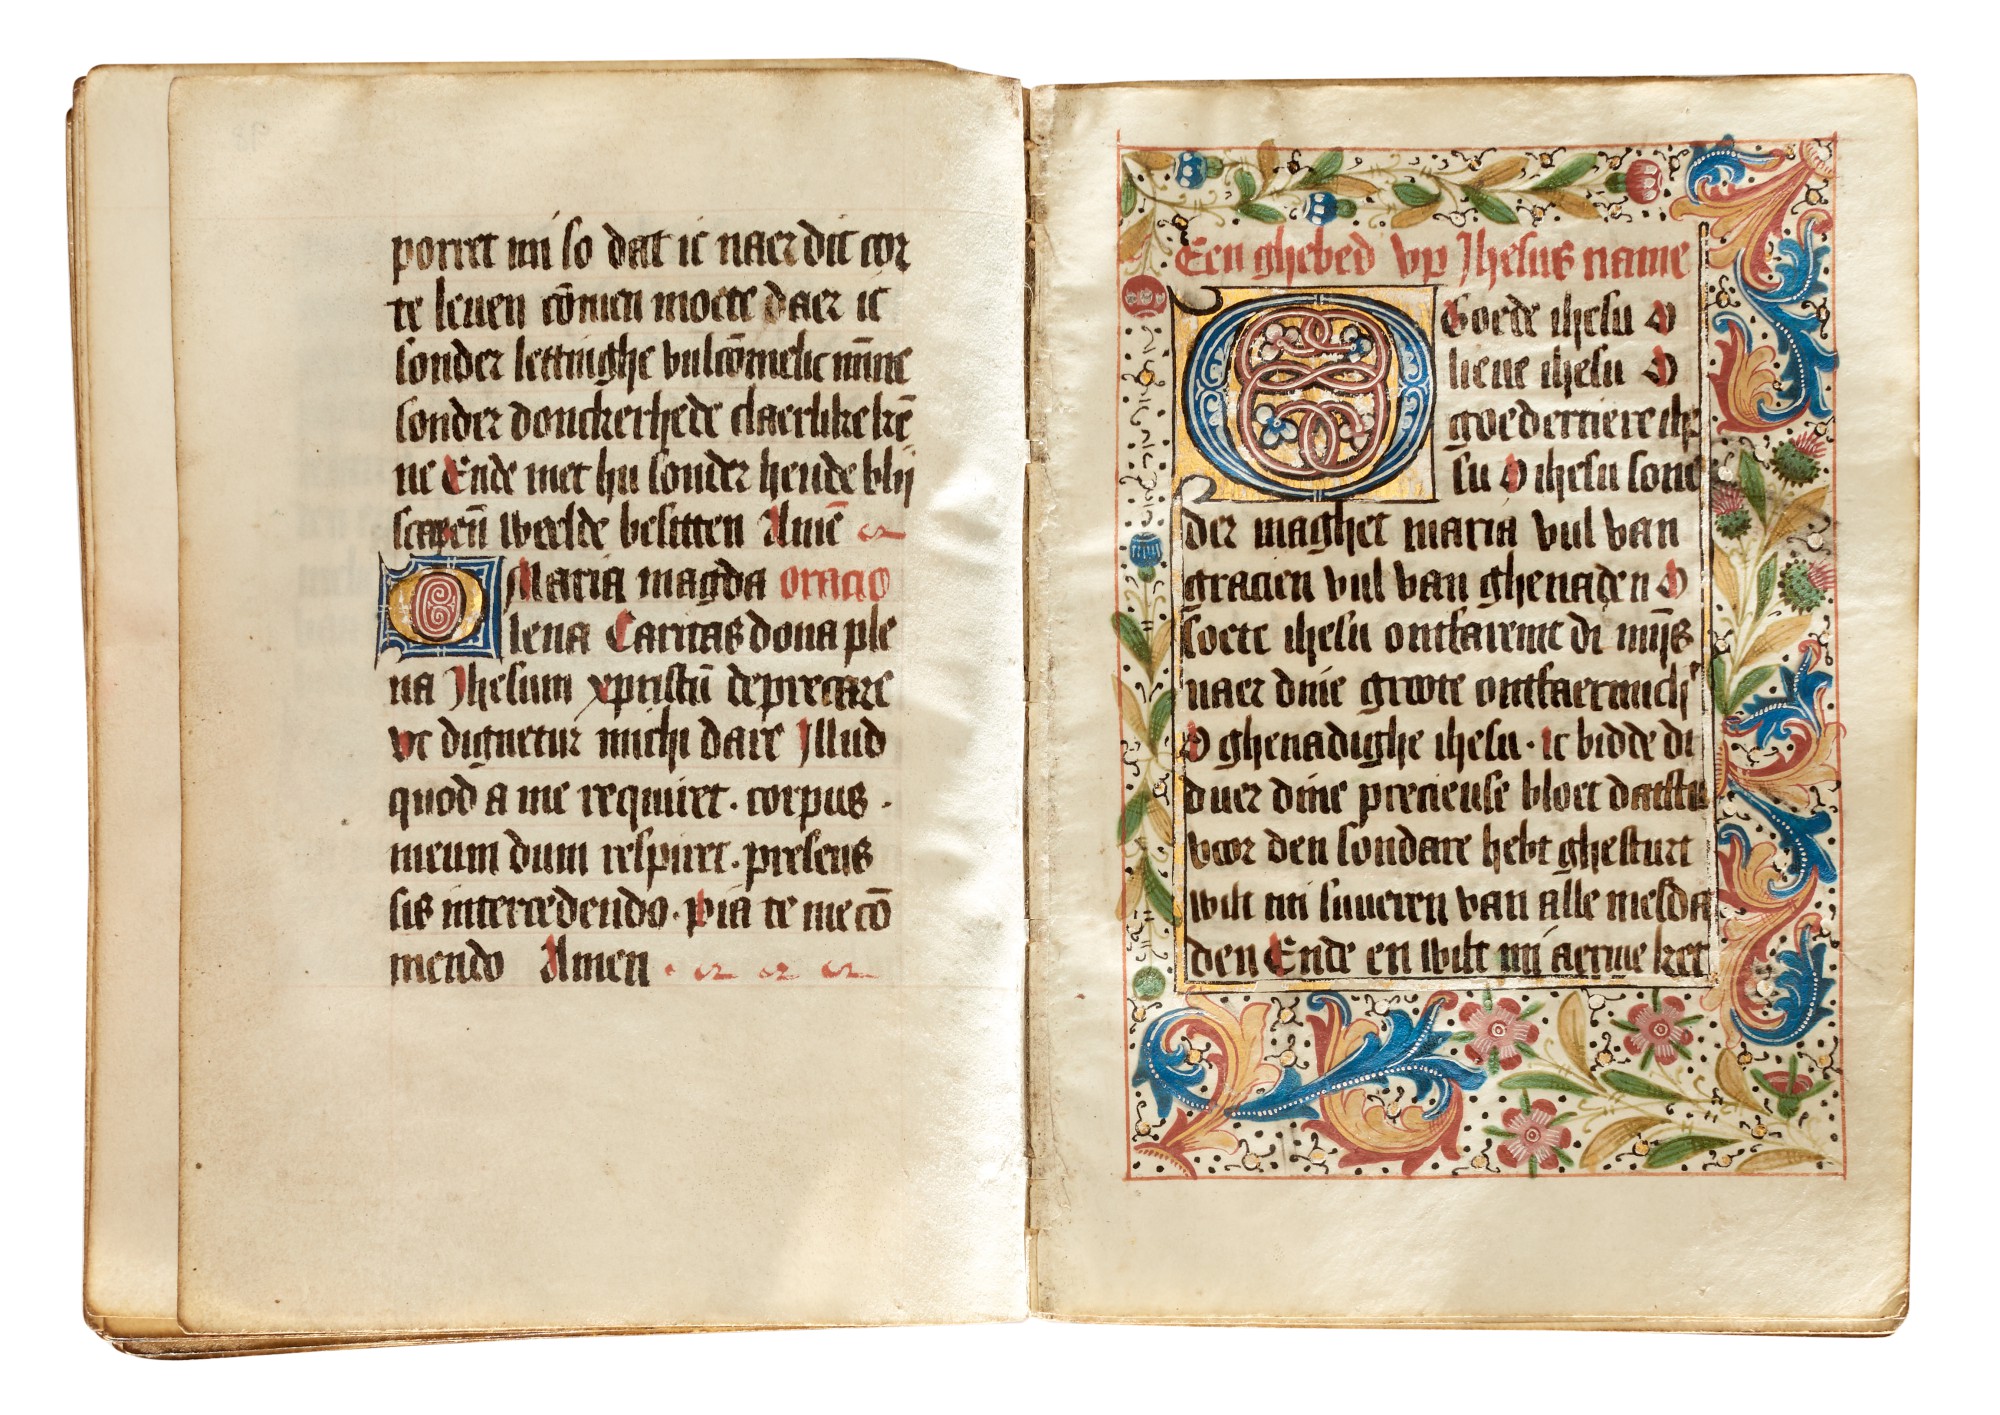 porret mi so dat ic naer dit cor
te leuen cōmen moete daer ic
sonder lettinghe vulcōmelic mīne
sonder donckerhede claerlike kē
ne Ende met hu sonder hende blij
scapēn weelde besitten Amē
O Maria magda oracio
lena Caritas dona ple
na Jhesum xpristū deprecare
vt dignetur michi dare Illud
quod a me requiret · corpus ·
meum dum respiret · presens
sis intercedendo · pia te me cō
mendo Amen
Een ghebed vp Jhesus name
O Goede ihesu O
lieue ihesu O
goedertiere ihe
su O ihesu sone
der maghet maria vul van
gracien vul van ghenaden O
soete ihesu ontfaremt di mijs
naer dine groote ontfaermich
O ghenadighe ihesu · ic bidde di
duer dine precieuse bloet datstu
voor den sondare hebt ghesturt
wilt mi suueren van alle mesda
den Ende en wilt mi aerme ket